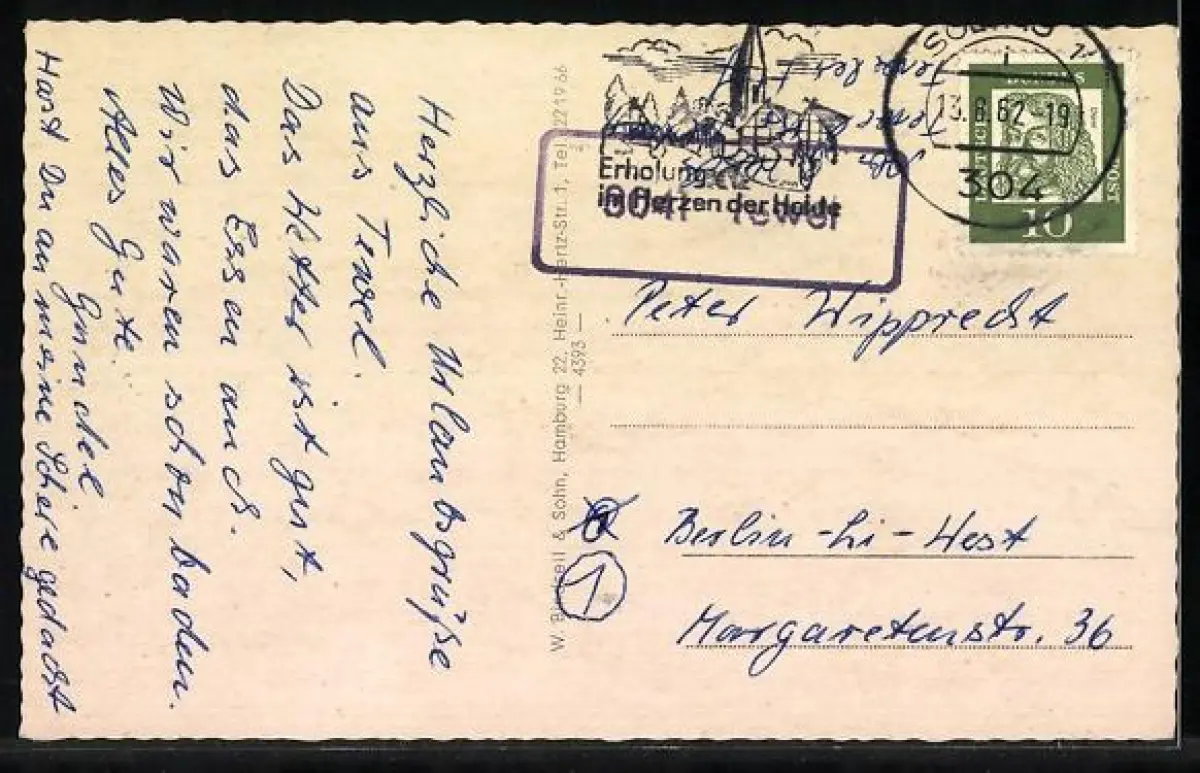 Herzliche Urlaubsgrüße
aus Tewel.
Das Wetter ist gut,
das Essen auch.
Wir waren schon baden.
Alles Gute.
Gundel
Hast Du an meine Schere gedacht
W. & Sohn, Hamburg 22, Heinr.-Hertz-Str. 1, Tel. 2271966
— 4393 —
Erholung
im Herzen der Heide
Tewel
13.6.62-19
304
10
Peter Wipprecht
1
Berlin-Li-West
Margaretenstr. 36